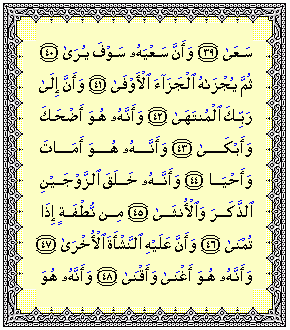 سَعَىٰ ﴿٣٩﴾ وَأَنَّ سَعْيَهُۥ سَوْفَ يُرَىٰ ﴿٤٠﴾
ثُمَّ يُجْزَىٰهُ ٱلْجَزَآءَ ٱلْأَوْفَىٰ ﴿٤١﴾ وَأَنَّ إِلَىٰ
رَبِّكَ ٱلْمُنتَهَىٰ ﴿٤٢﴾ وَأَنَّهُۥ هُوَ أَضْحَكَ
وَأَبْكَىٰ ﴿٤٣﴾ وَأَنَّهُۥ هُوَ أَمَاتَ
وَأَحْيَا ﴿٤٤﴾ وَأَنَّهُۥ خَلَقَ ٱلزَّوْجَيْنِ
ٱلذَّكَرَ وَٱلْأُنثَىٰ ﴿٤٥﴾ مِن نُّطْفَةٍ إِذَا
تُمْنَىٰ ﴿٤٦﴾ وَأَنَّ عَلَيْهِ ٱلنَّشْأَةَ ٱلْأُخْرَىٰ ﴿٤٧﴾
وَأَنَّهُۥ هُوَ أَغْنَىٰ وَأَقْنَىٰ ﴿٤٨﴾ وَأَنَّهُۥ هُوَ